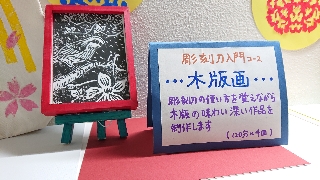 彫刻刀入門コース
・・・木版画・・・
彫刻刀の使い方を覚えながら
木版の味わい深い作品を
制作します
(120分×4回)